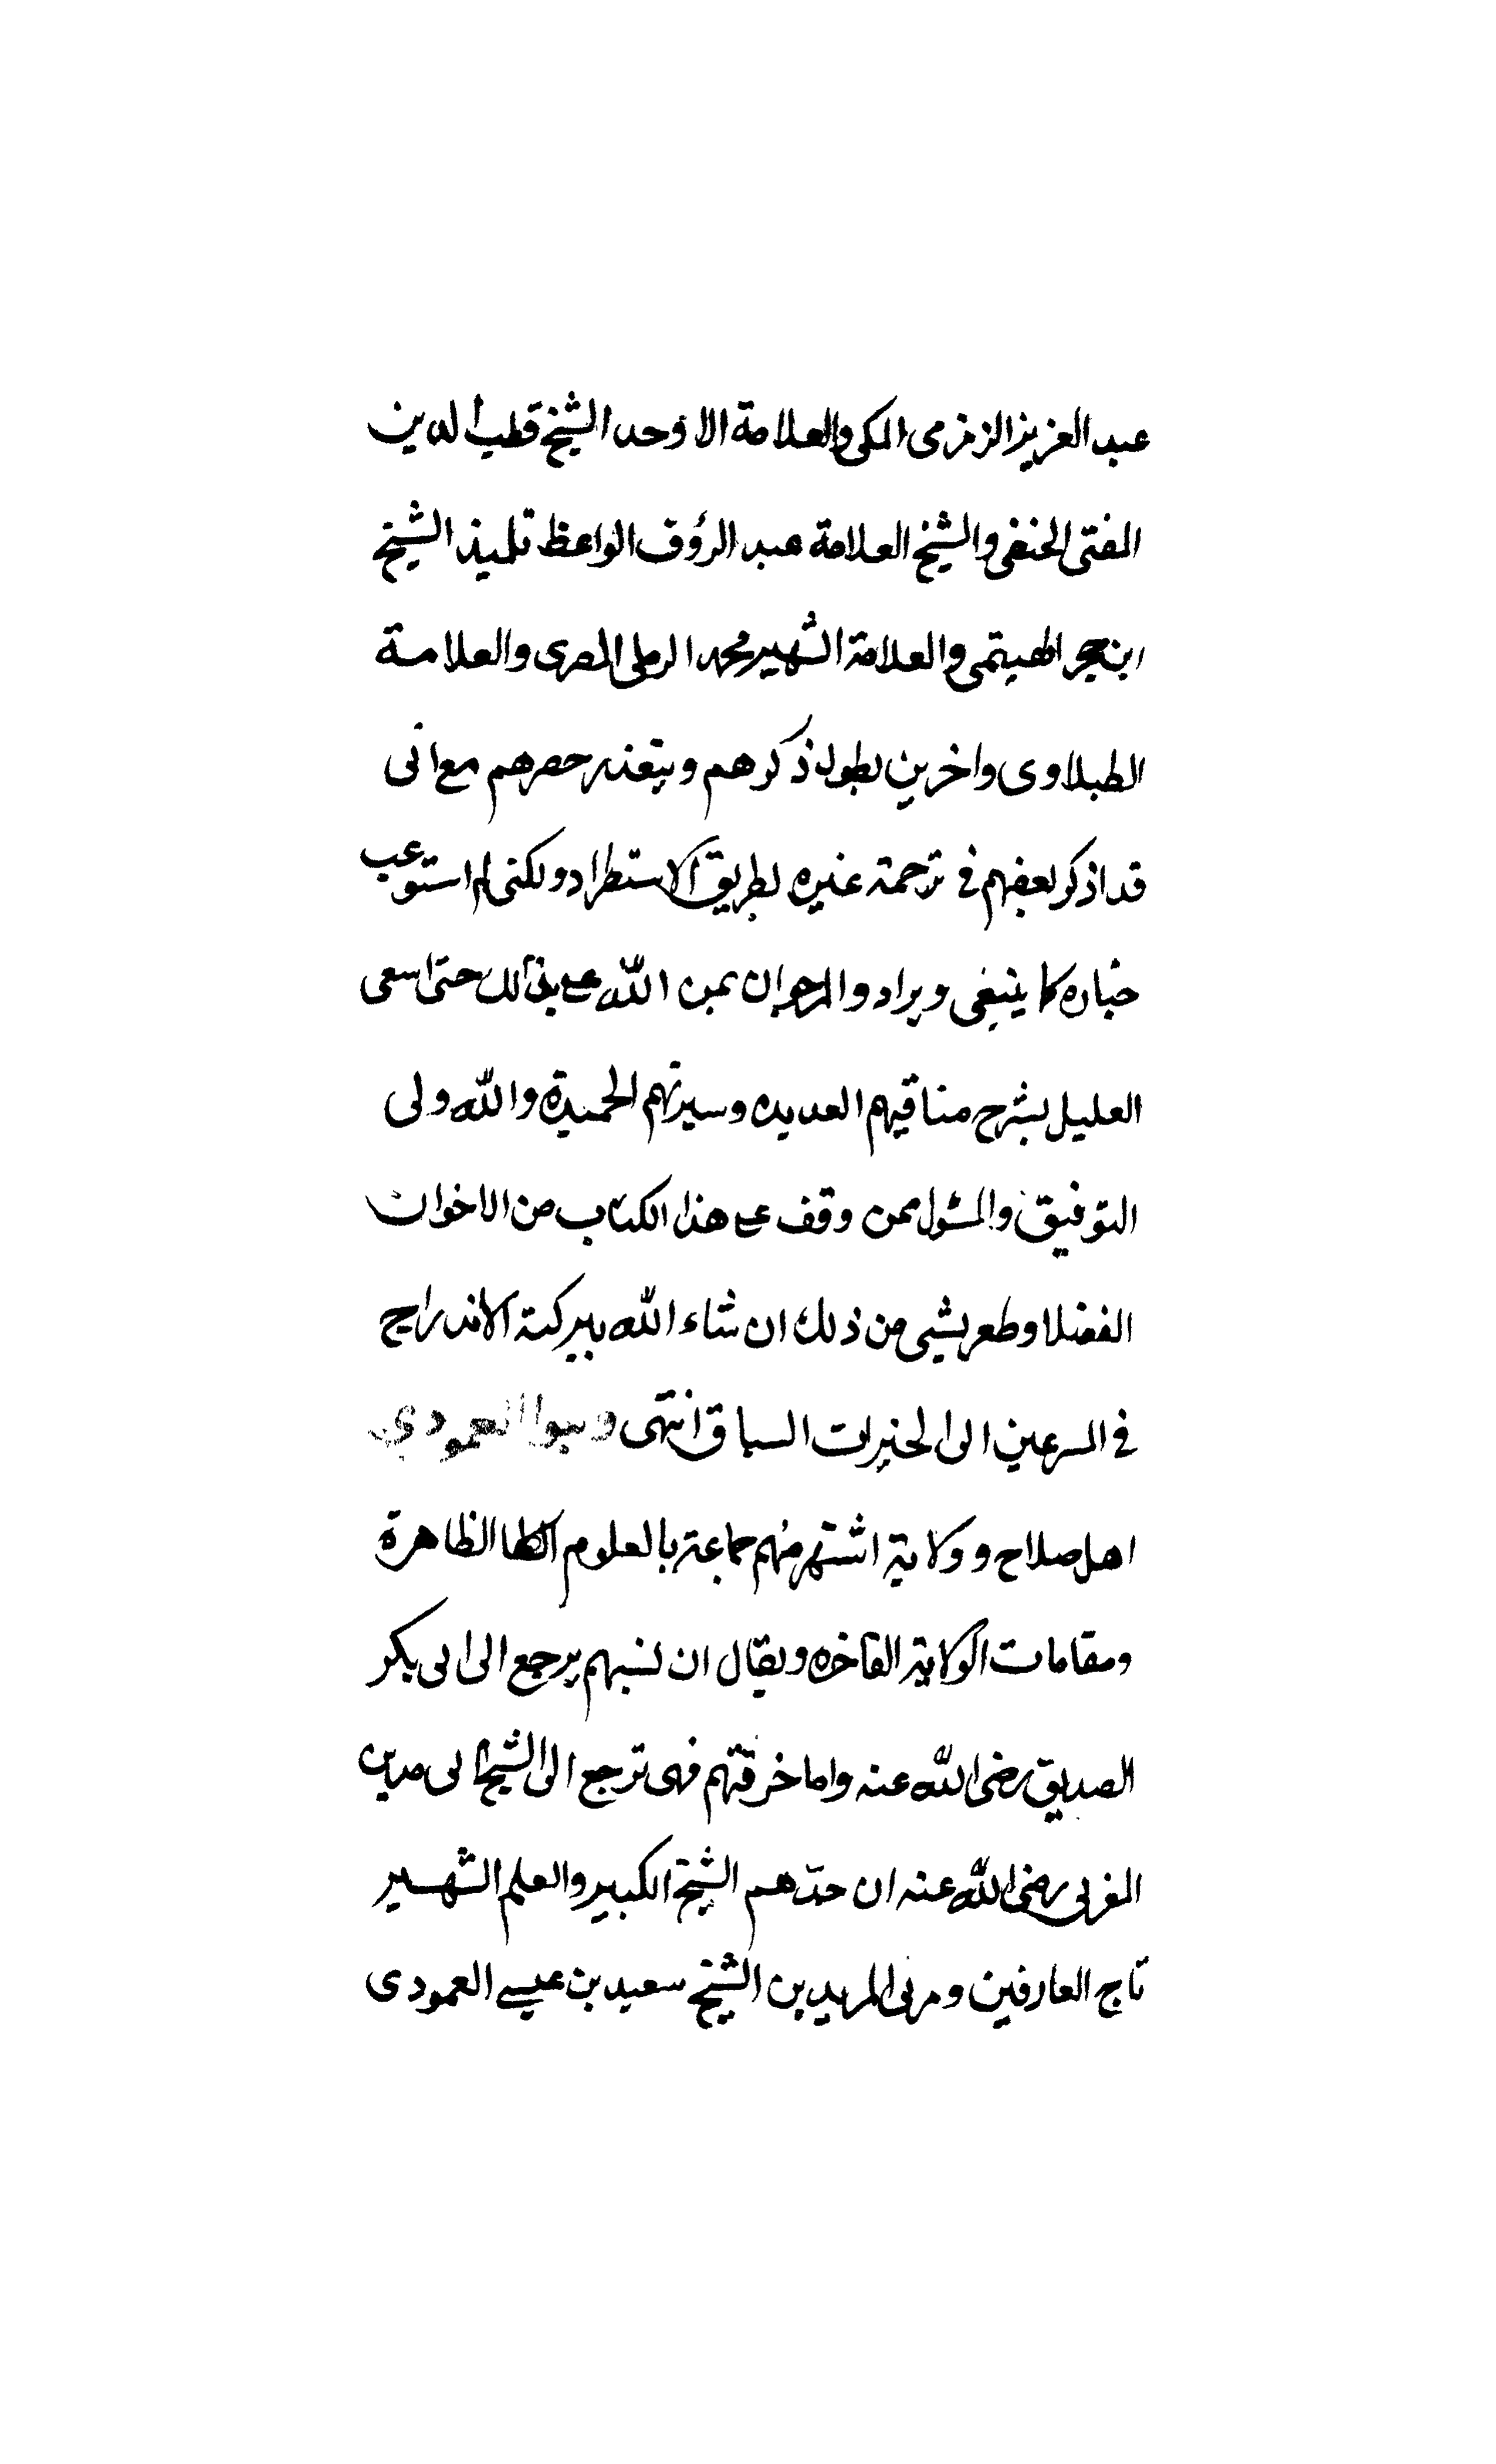 عبد العزيز الزمزمى المكى والعلامة الاوحد الشيخ قطب الدين
المفتى الحنفى والشيخ العلامة عبد الرؤف الواعظ تلميذ الشيخ
ابن حجر الهيتمى والعلامة الشهير محمد الرملى المصرى والعلامة
الطبلاوى واخرين يطول ذكرهم ويتعذر حصرهم مع انى
قد اذكر بعضهم فى ترجمة غيره بطريق الاستطراد ولكنى لم استوعب
خباره كما ينبغى ويراد والمرجو ان يمن الله على بذالك حتى اسعى
العليل بشرح مناقبهم العديده وسيرتهم الحميدة والله ولى
التوفيق والمسئول ممن وقف على هذا الكتاب من الاخوان
الفضلا وطعر بشيى من ذلك ان شاء الله ببركته الاندراج
فى المسرعين الى الخيرات السباق انتهى وبنوا العمودي
اهل صلاح وولاية اشتهر منهم جماعة بالعلوم الظاهرة
ومقامات الولاية الفاخره ويقال ان نسبهم يرجع الى ابى بكر
الصديق رضى الله عنه واما خرقتهم فهى ترجع الى الشيخ ابى مدين
المغربى رضى الله عنه ان جدّهم الشيخ الكبير والعلم الشهير
تاج العارفين ومربى المريدين الشيخ سعيد بن عيسى العمودى